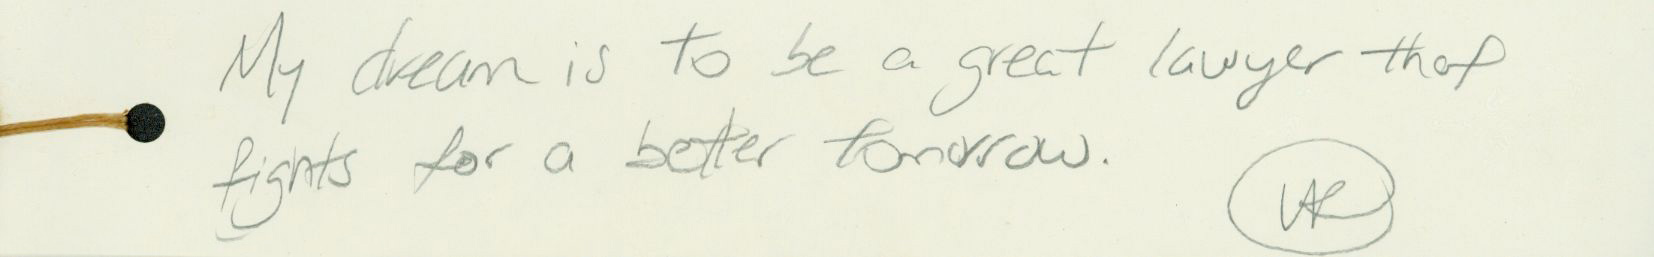 My dream is to be a great lawyer that
fights for a better tomorrow.